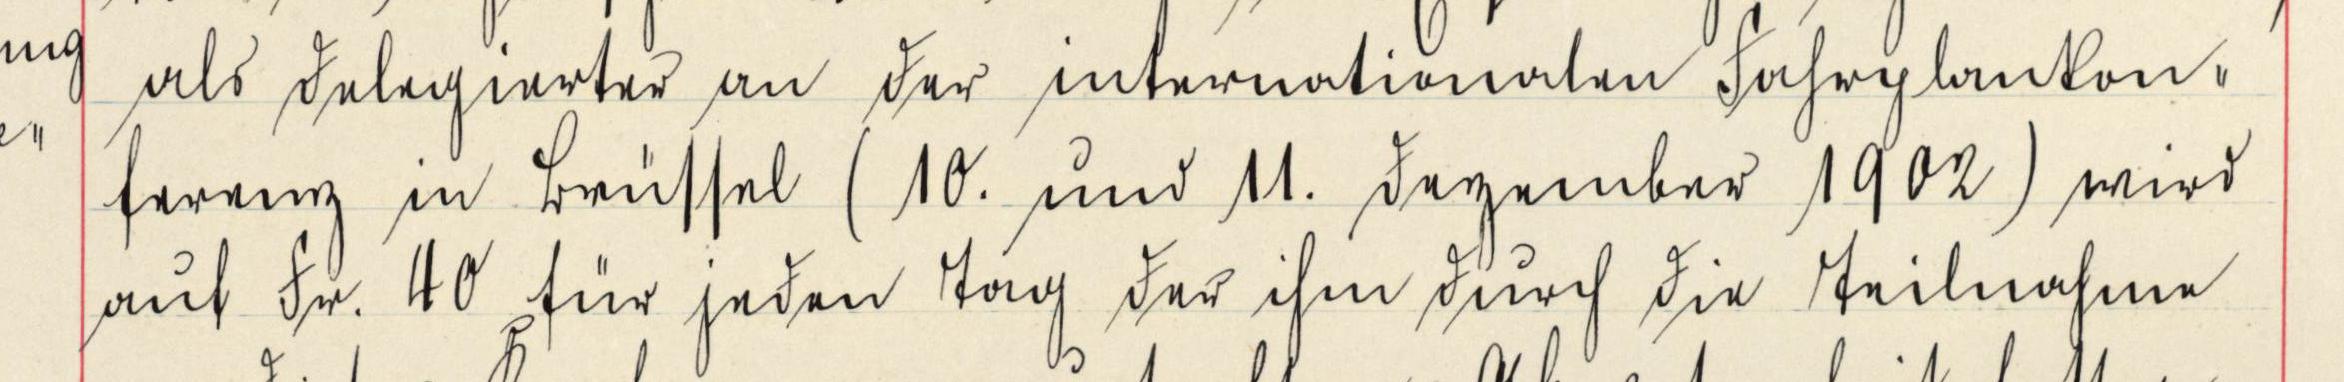 als Delegierter an der internationalen Fahrplankon-
ferenz in Brüssel (10. und 11. Dezember 1902) wird
auf Fr. 40 für jeden Tag der ihm durch die Teilnahme